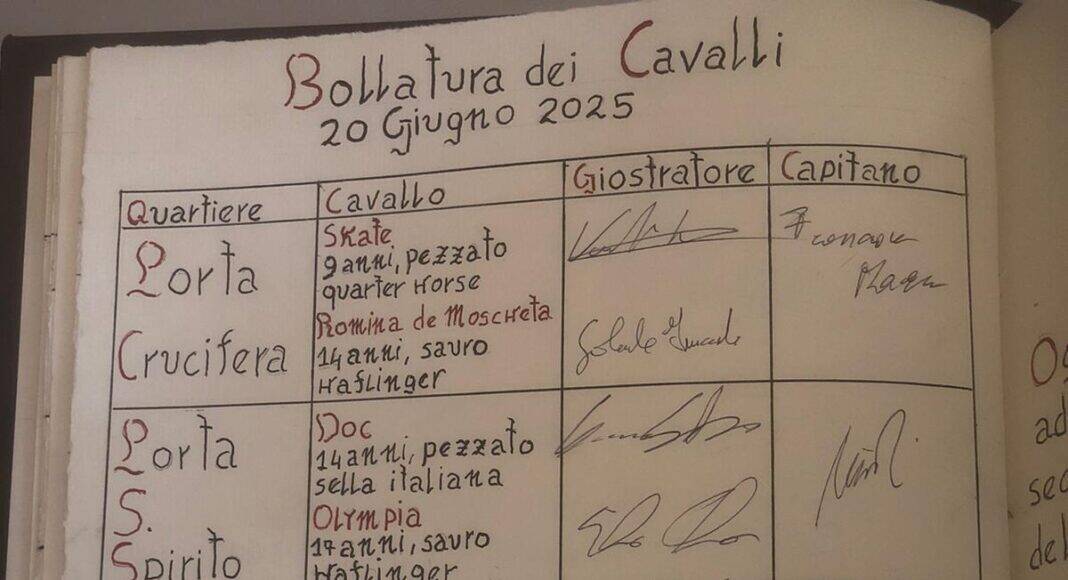 Bollatura dei Cavalli
20 Giugno 2025
Quartiere
Cavallo
Giostratore
Capitano
Porta
Crucifera
Skate
9 anni, pezzato
quarter Horse
Romina de Moscheta
14 anni, sauro
Haflinger
Porta
S.
Spirito
Doc
14 anni, pezzato
sella italiana
Olympia
17 anni, sauro
Haflinger